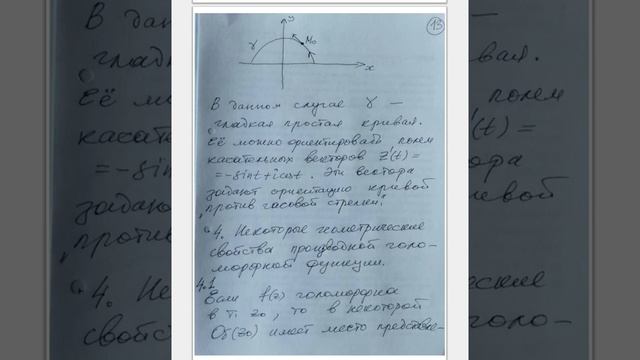 13
y
M₀
γ
x
В данном случае γ —
гладкая простая кривая.
Её можно ориентировать полем
касательных векторов z'(t) =
= -sint + icost. Эти вектора
задают ориентацию кривой
„против часовой стрелки".
4. Некоторые геометрические
свойства производной голо-
морфной функции.
4.1
Если f(z) голоморфна
в т. z₀, то в некоторой
Oδ(z₀) имеет место представле-